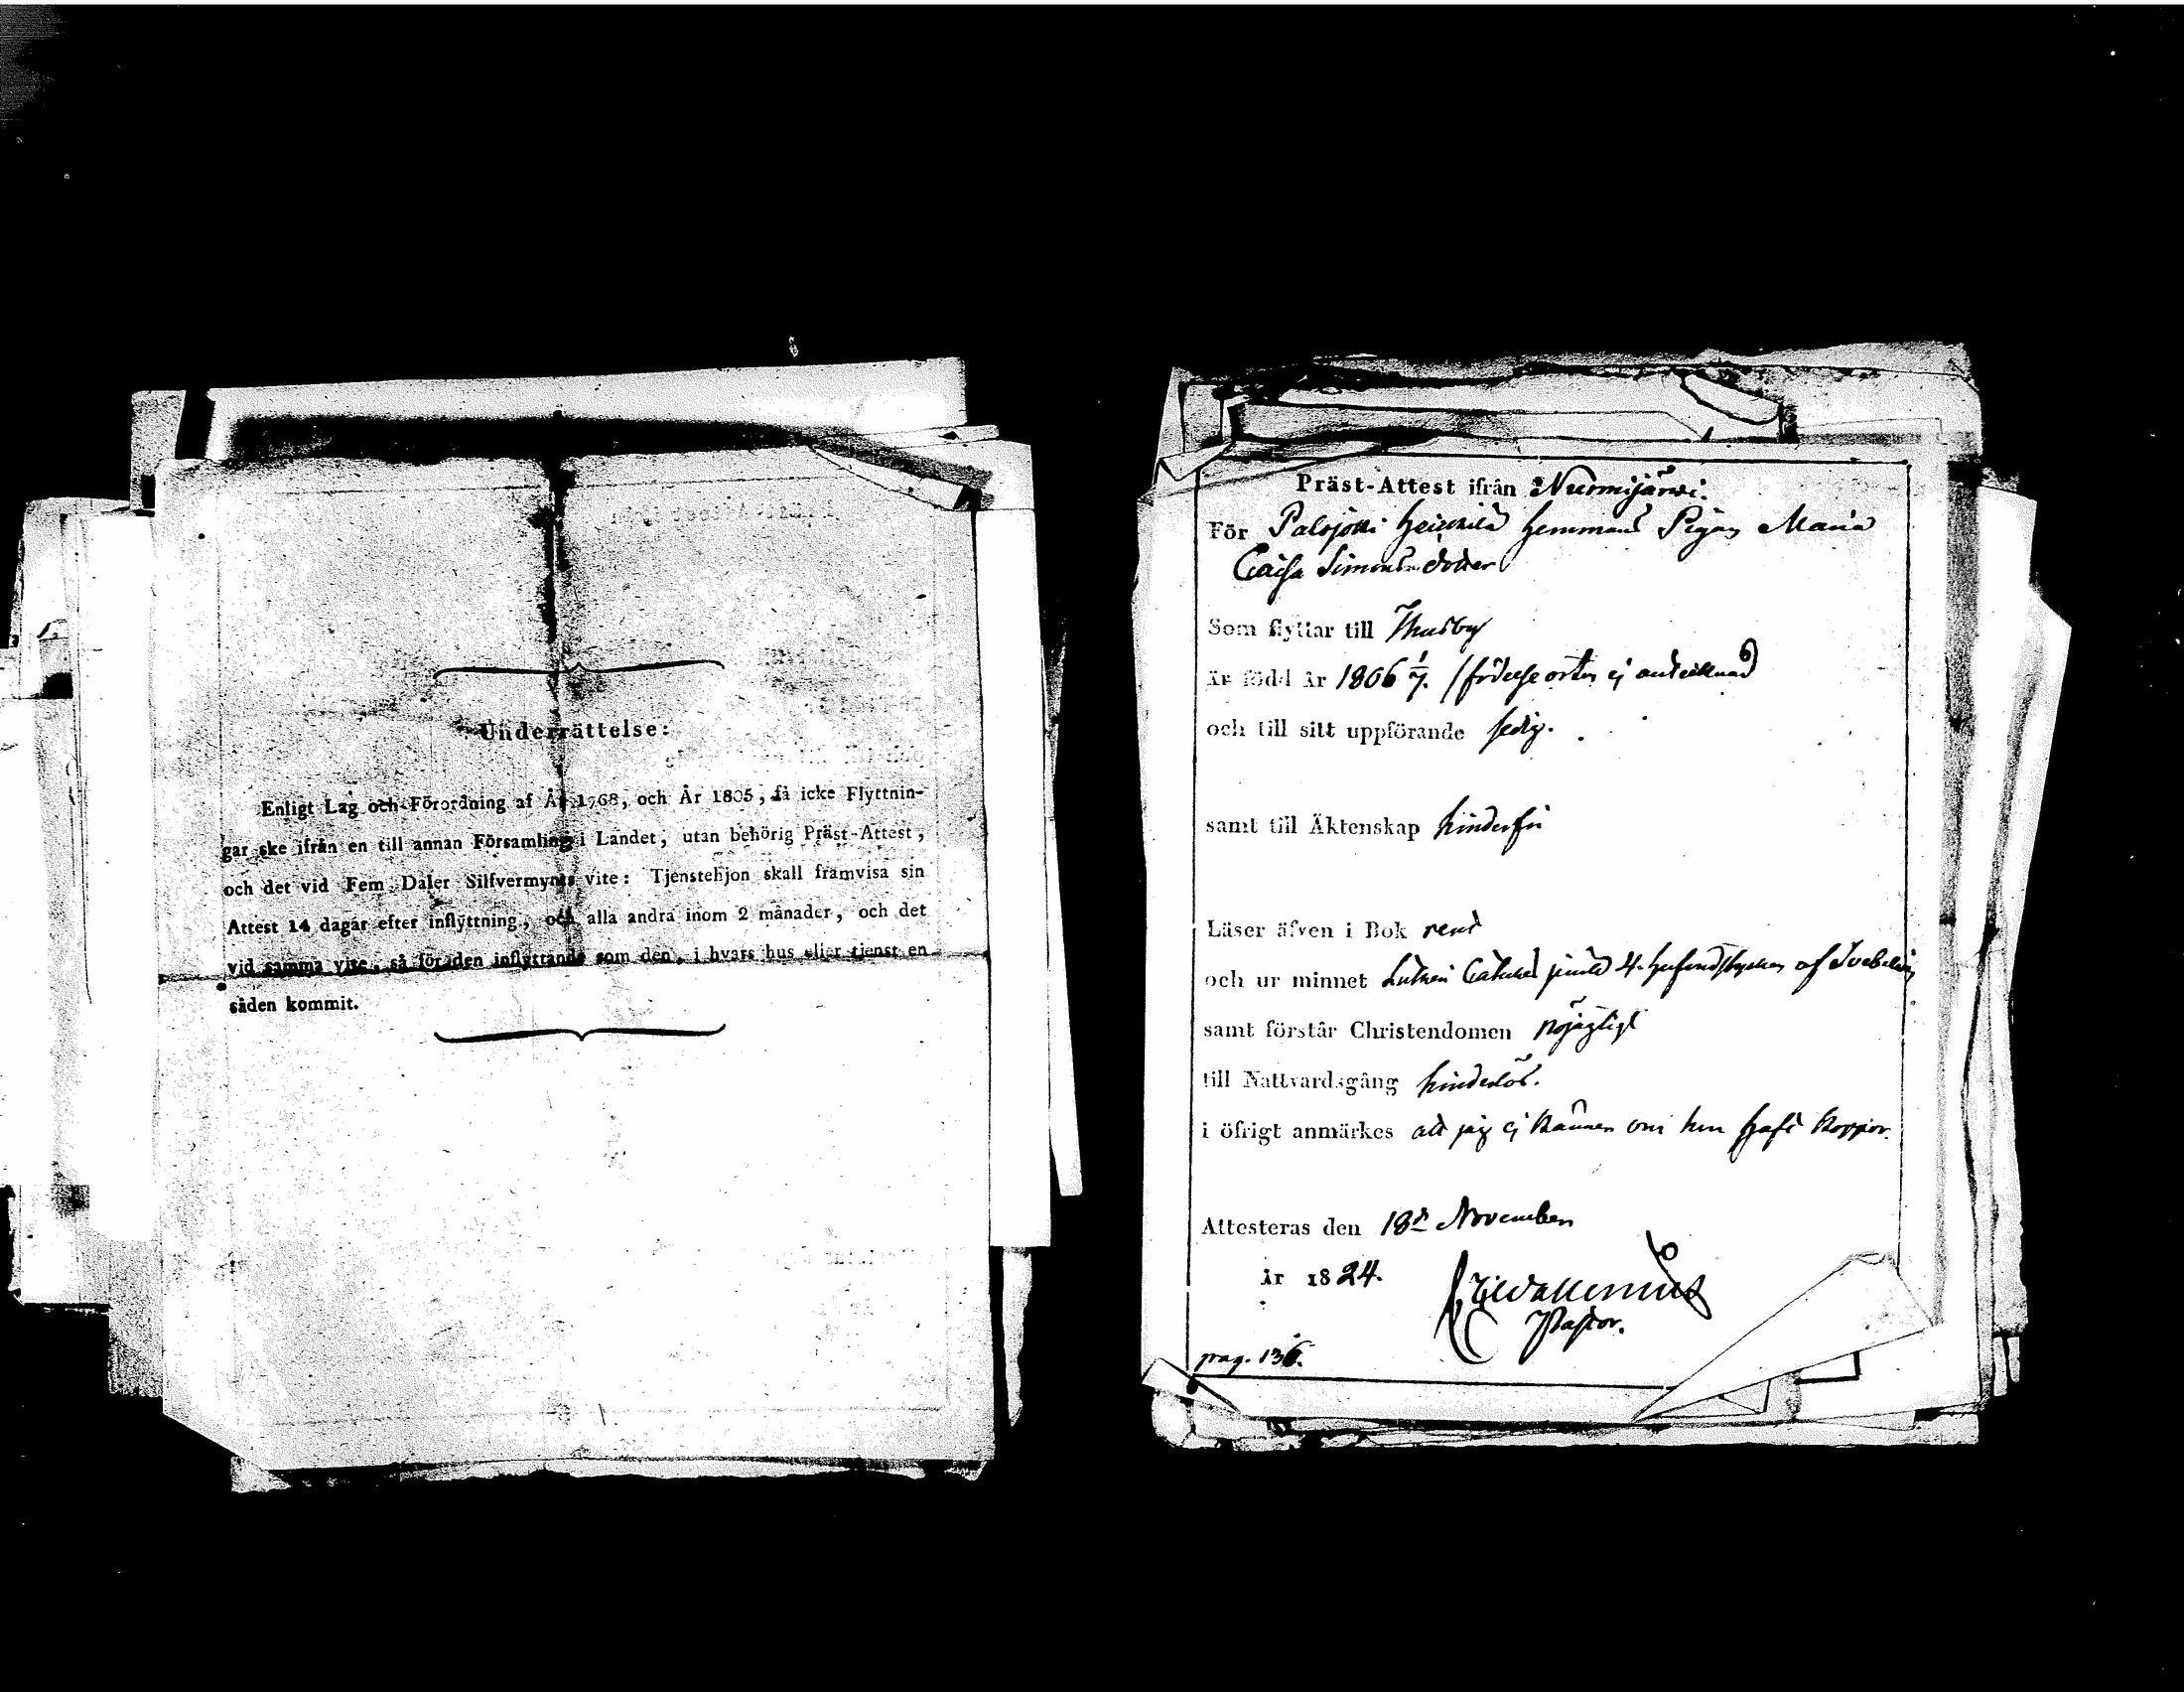 Underrättelse:
Enligt Lag och Förordning af År 1768, och År 1805, få icke Flyttnin-
gar ske ifrån en till annan Församling i Landet, utan behörig Präst-Attest,
och det vid Fem Daler Silfvermynts vite: Tjenstehjon skall framvisa sin
Attest 14 dagar efter inflyttning, och alla andra inom 2 månader, och det
vid samma vite, så för den inflyttande som den, i hvars hus eller tjenst en
såden kommit.
Präst-Attest ifrån Nurmijärwi.
För Palojoki Heikkilä Hemmans Pigan Maria
Caisa Simonsdotter
Som flyttar till Thusby
är född år 1806 1/7. (födelseorten ej antecknad)
och till sitt uppförande sedig.
samt till Äktenskap hinderfri
Läser äfven i Bok rent
och ur minnet Lutheri Catches jemte 4. hufvudstycken af Svebelius
samt förstår Christendomen nöjagtigt
till Nattvardsgång hinderlös.
i öfrigt anmärkes att jag ej känner om hon haft koppor.
Attesteras den 18de November
år 1824.
Pastor.
pag. 136.